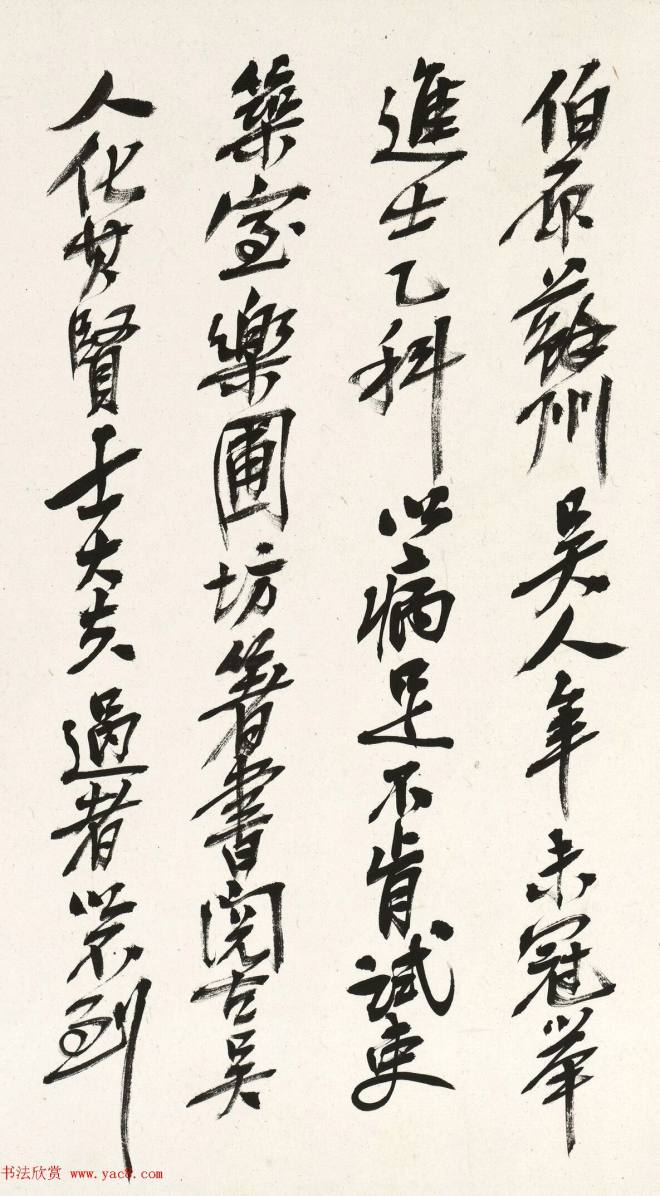 伯原蘇州吳人年未冠舉
進士乙科以病足不肯試吏
築室樂圃坊著書閱古吳
人化其賢士大夫過者以不到
书法欣赏 www.yac8.com